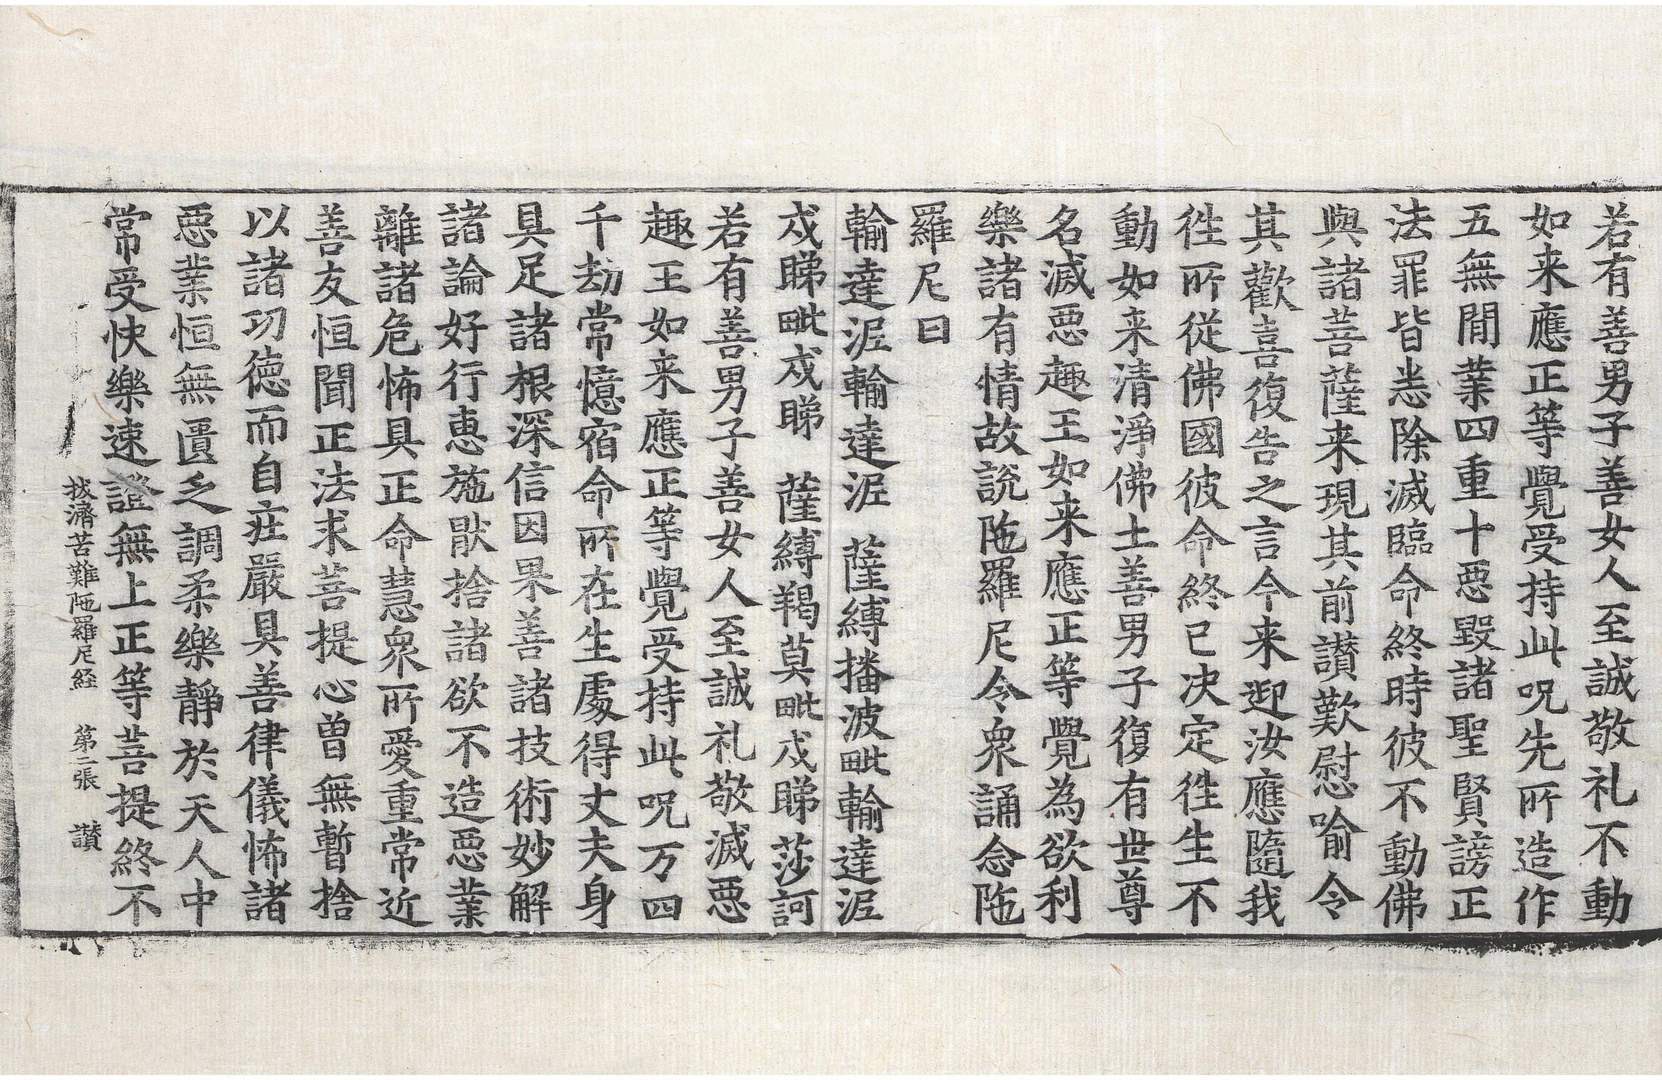 若有善男子善女人至誠敬礼不動
如来應正等覺受持此呪先所造作
五無間業四重十惡毀諸聖賢謗正
法罪皆悉除滅臨命終時彼不動佛
與諸菩薩来現其前讃歎慰喻令
其歡喜復告之言今来迎汝應隨我
徃所從佛國彼命終已决定徃生不
動如来清淨佛土善男子復有世尊
名滅惡趣王如来應正等覺為欲利
樂諸有情故説陁羅尼令衆誦念陁
羅尼曰
輸達泥輸達泥 薩縛播波毗輸達泥
戍睇毗戍睇 薩縛羯莫毗戍睇莎訶
若有善男子善女人至誠礼敬滅惡
趣王如来應正等覺受持此呪万四
千劫常憶宿命所在生處得丈夫身
具足諸根深信因果善諸技術妙解
諸論好行惠施猒捨諸欲不造惡業
離諸危怖具正命慧衆所愛重常近
善友恒聞正法求菩提心曾無暫捨
以諸功德而自疘嚴具善律儀怖諸
惡業恒無匱乏調柔樂靜於天人中
常受快樂速證無上正等菩提終不
拔濟苦難陁羅尼経 第二張 讃